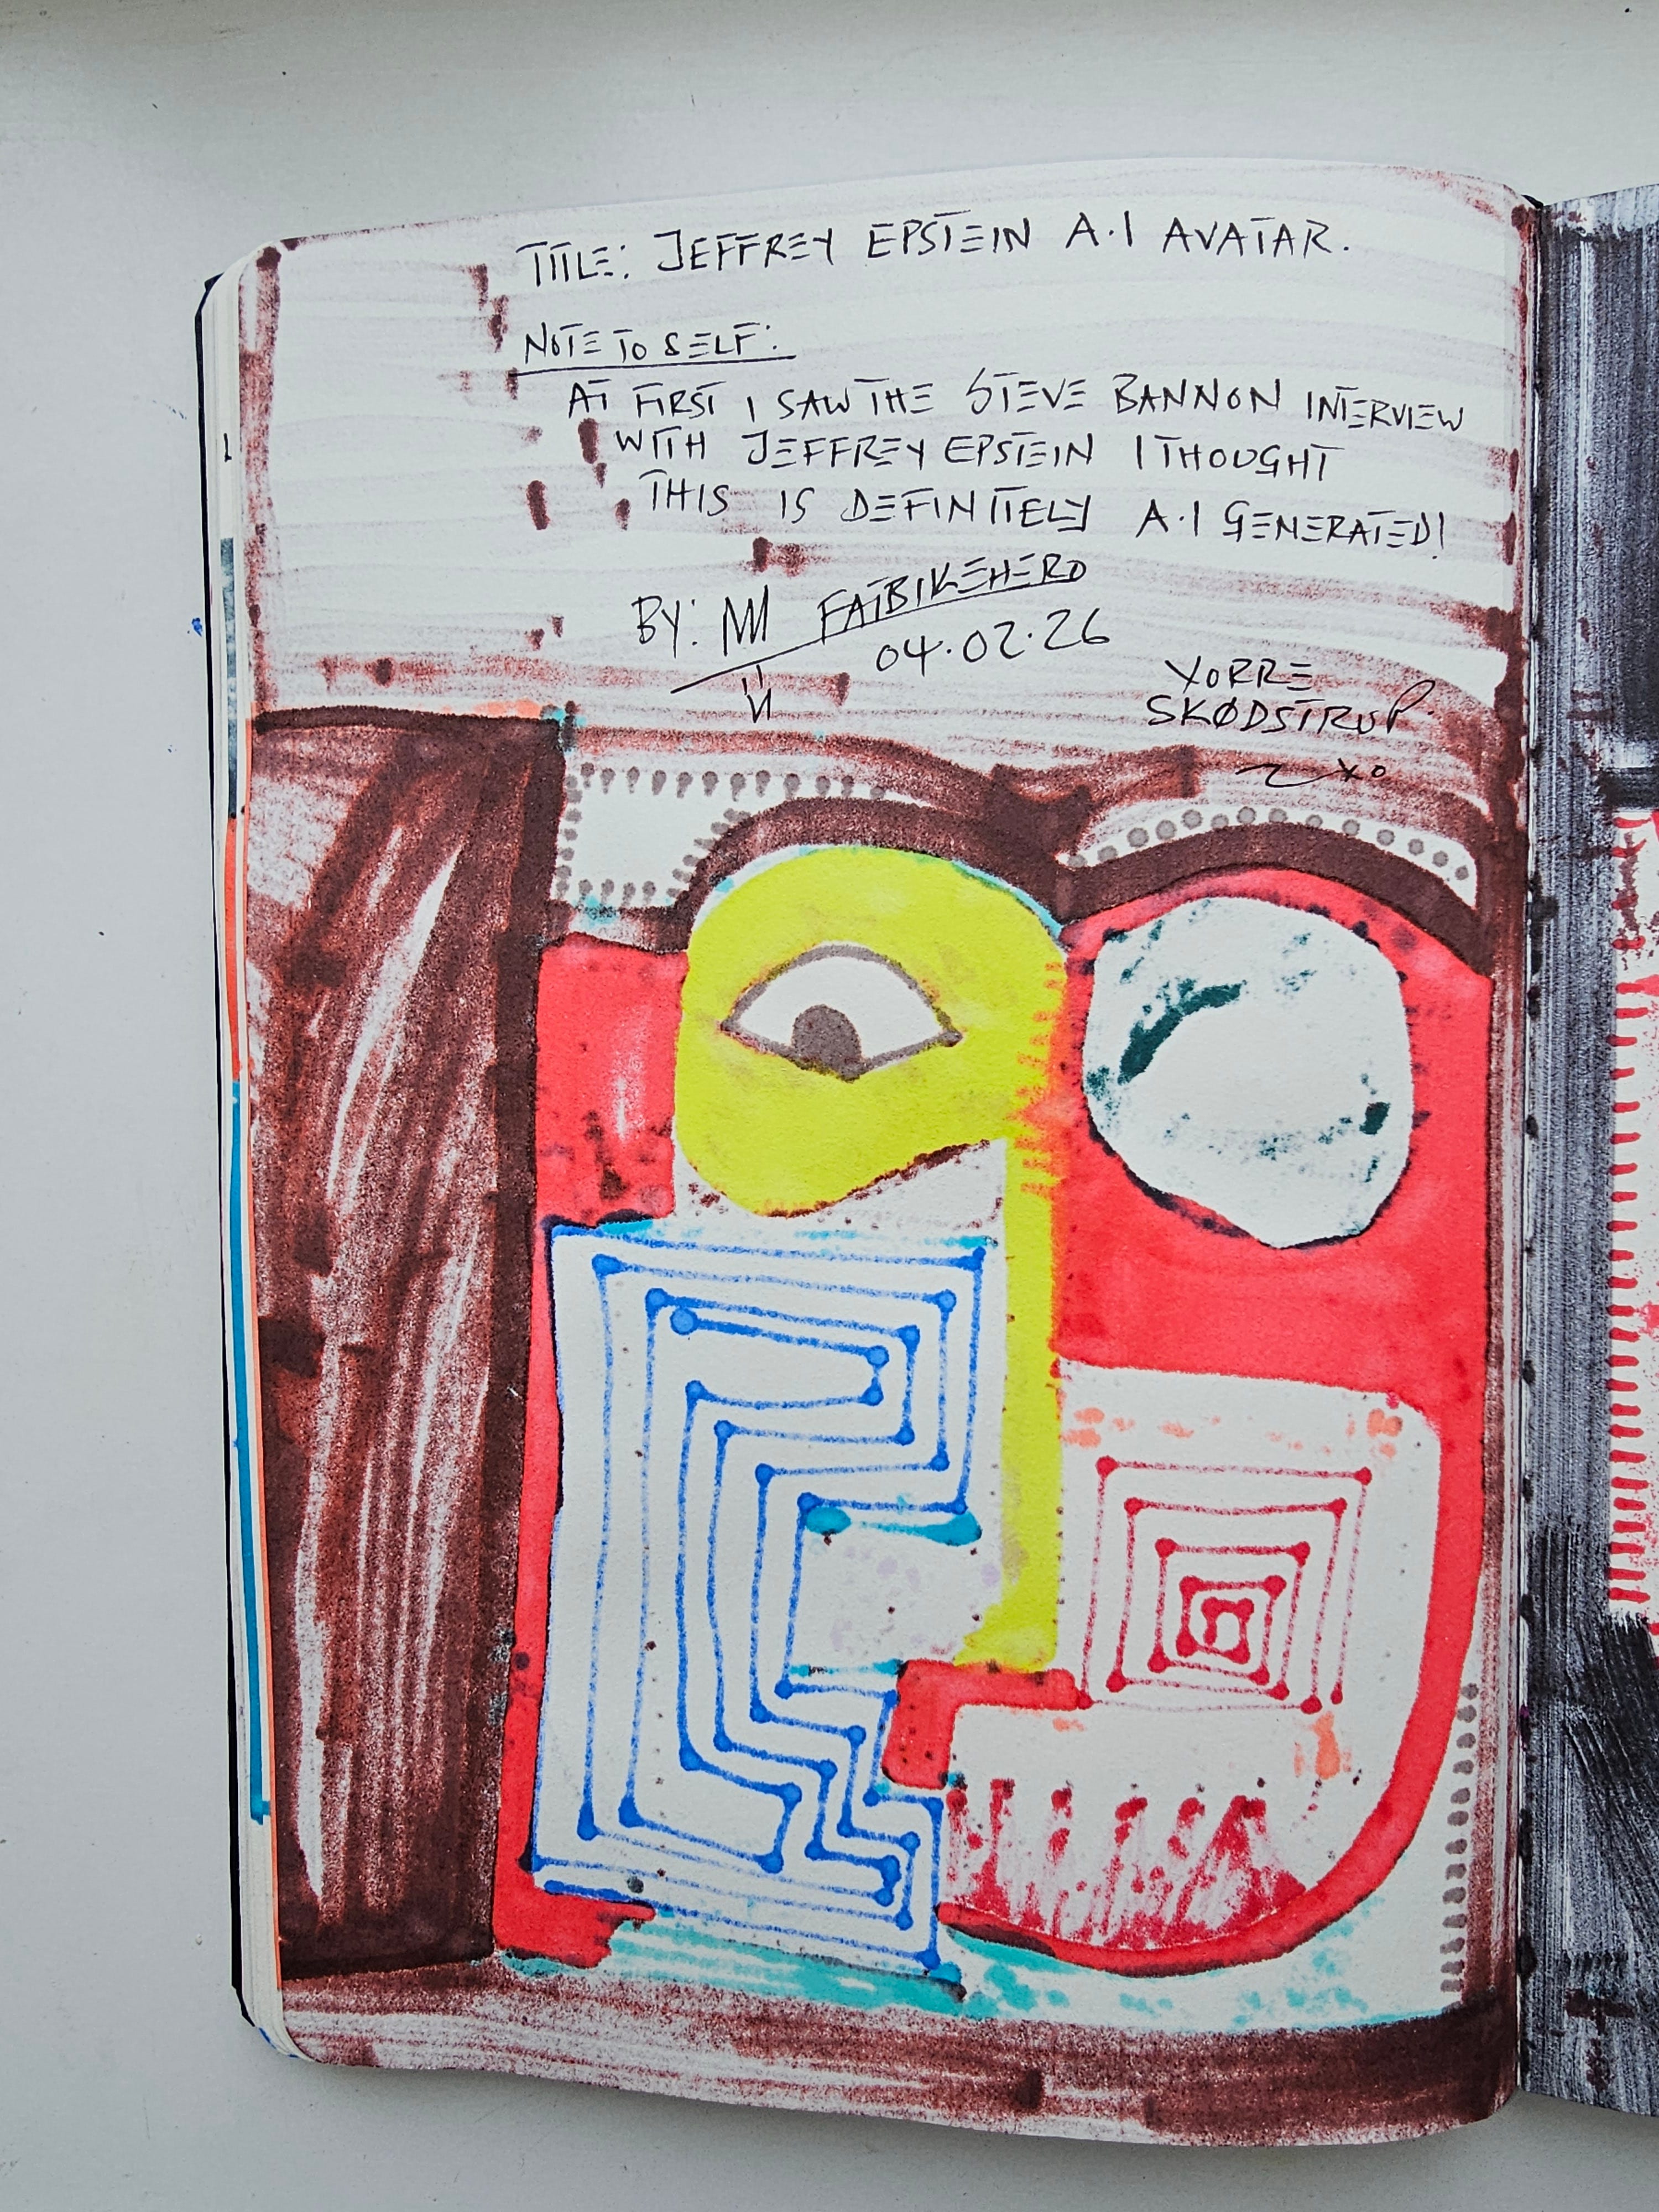 TITLE: JEFFREY EPSTEIN A.I AVATAR.
NOTE TO SELF:
AT FIRST I SAW THE STEVE BANNON INTERVIEW
WITH JEFFREY EPSTEIN I THOUGHT
THIS IS DEFINITIELY A.I GENERATED!
BY: FATBIKEHERO
04.02.26
YORRE
SKØDSTRUP
XO